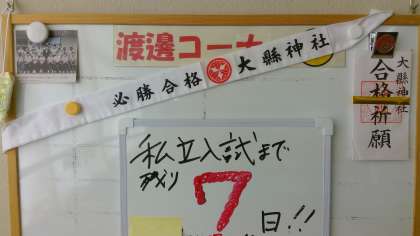 渡邊コーナー
必勝合格 大縣神社
大縣神社
合格祈願
私立入試まで
残り
7
日!!